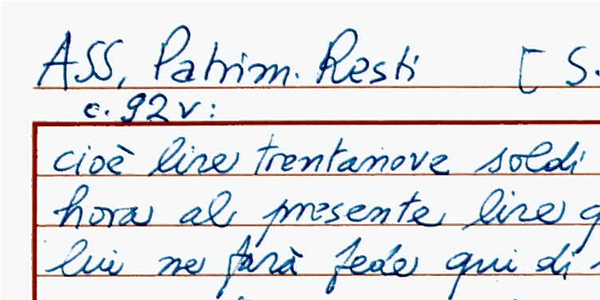 ASS, Patrim. Resti [ S.
c. 92 v:
cioè lire trentanove soldi
hora al presente lire
lui ne farà fede qui di